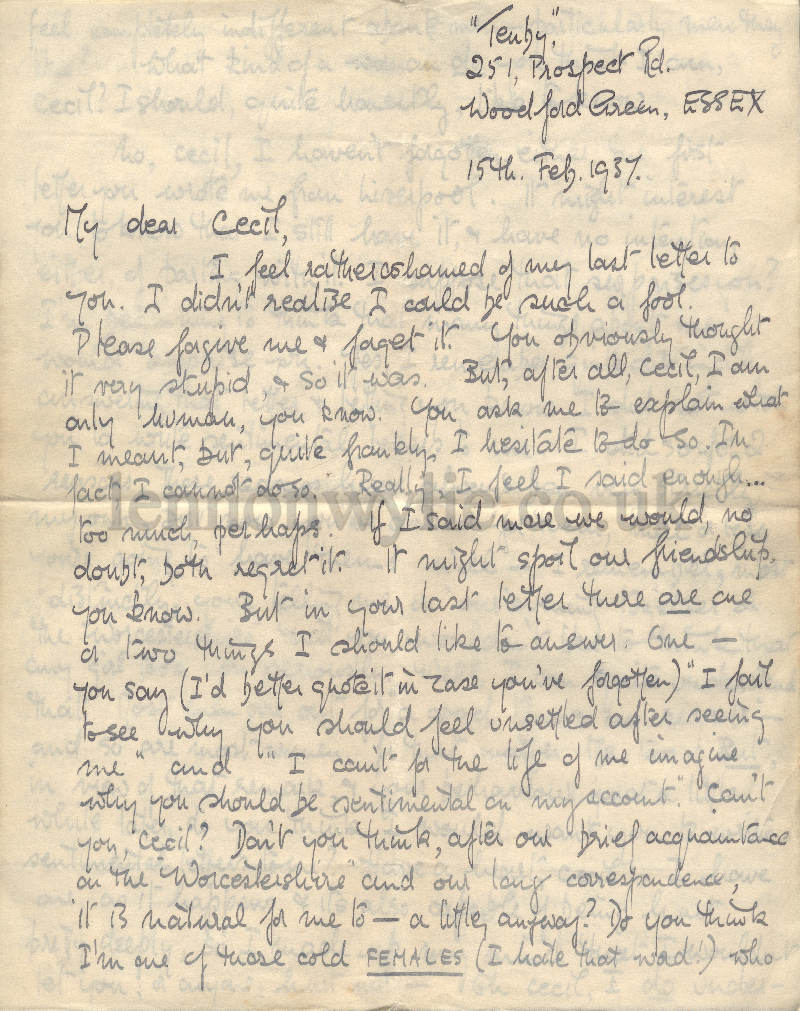 "Tenby."
251, Prospect Rd.
Woodford Green, ESSEX
15th. Feb. 1937.
My dear Cecil,
I feel rather ashamed of my last letter to
you. I didn't realise I could be such a fool.
Please forgive me & forget it. You obviously thought
it very stupid, & so it was. But, after all, Cecil, I am
only human, you know. You ask me to explain what
I meant, but, quite frankly, I hesitate to do so. In
fact I cannot do so. Really, I feel I said enough...
too much, perhaps. If I said more we would, no
doubt, both regret it. It might spoil our friendship,
you know. But in your last letter there are one
or two things I should like to answer. One —
you say (I'd better quote it in case you've forgotten) "I fail
to see why you should feel unsettled after seeing
me" and "I can't for the life of me imagine
why you should be sentimental on my account." Can't
you, Cecil? Don't you think, after our brief acquaintance
on the "Worcestershire" and our long correspondence,
it is natural for me to — a little, anyway? Do you think
I'm one of those cold FEMALES (I hate that word!) who
lennonwylie.co.uk